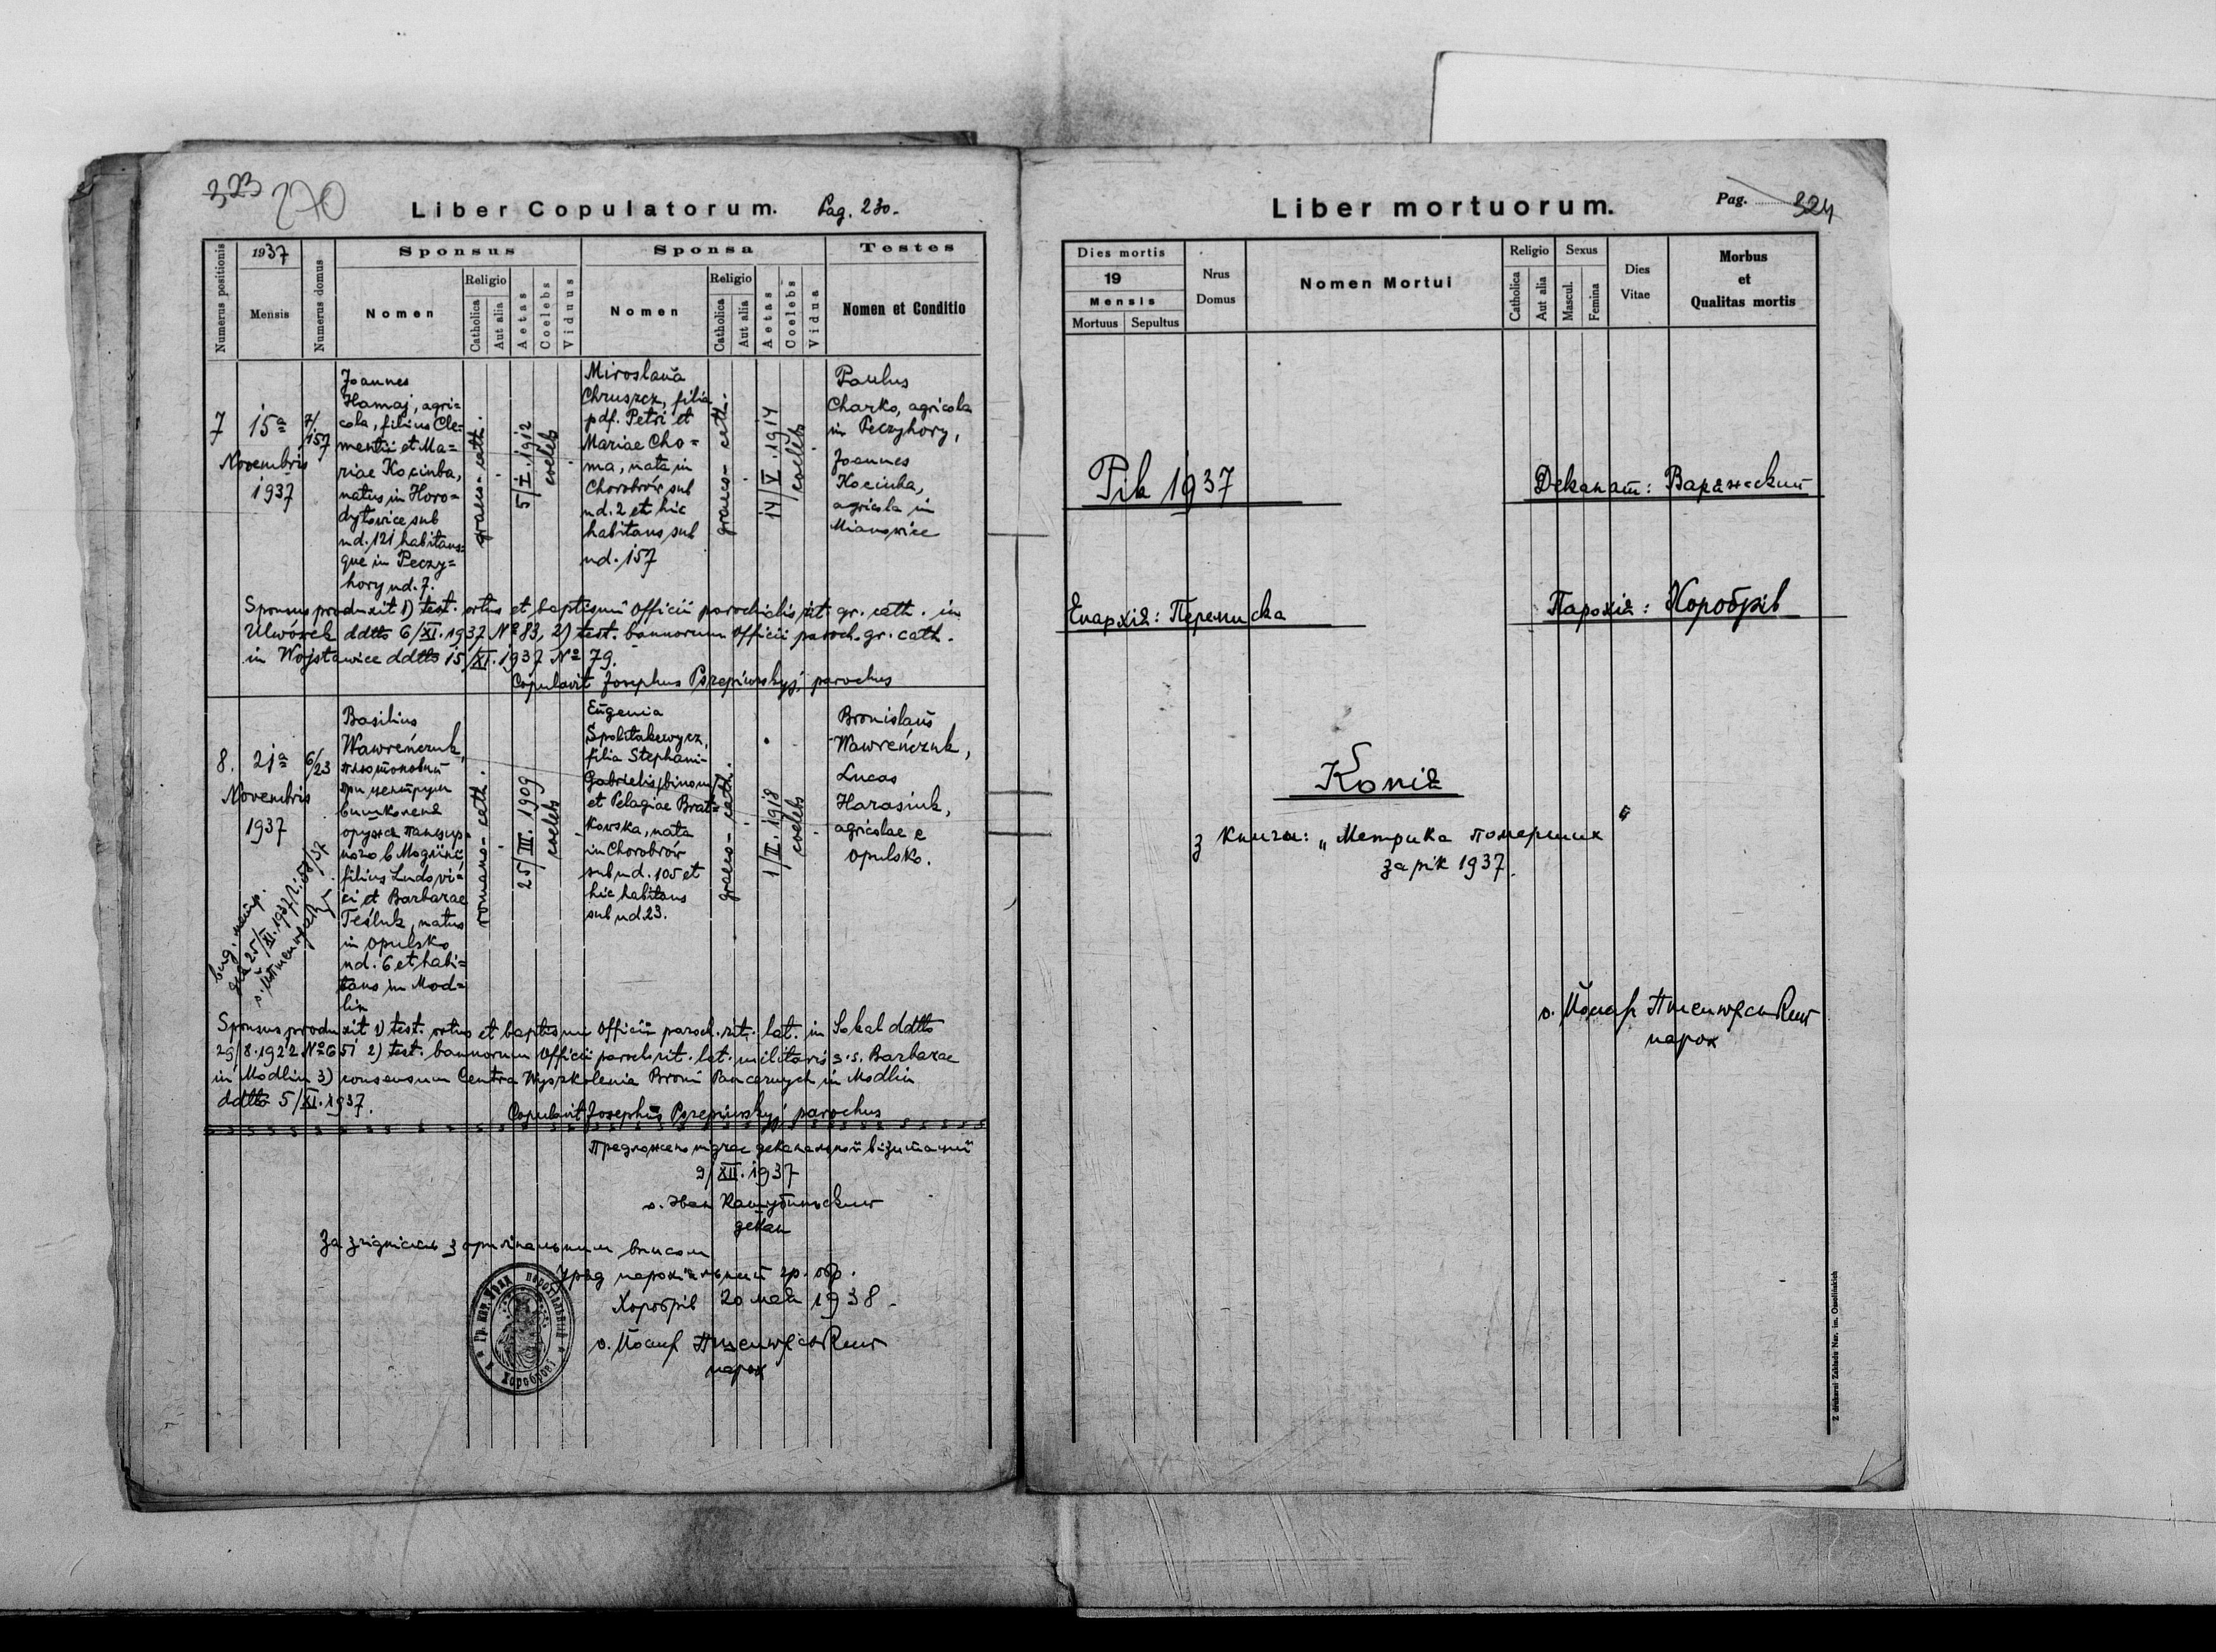 323
270
Liber Copulatorum.
Pag. 230.
Numerus positionis
1937
Mensis
Numerus domus
Sponsus
Nomen
Religio
Catholica
Aut alia
Aetas
Coelebs
Viduus
Sponsa
Nomen
Religio
Catholica
Aut alia
Aetas
Coelebs
Vidua
Testes
Nomen et Conditio
7
15a
Novembris
1937
7/157
Joannes
Hamaj, agri=
cola, filius Cle=
mentii et Ma=
riae Kociuba,
natus in Horo=
dyłowice sub
nd. 121 habitans=
que in Peczy=
hory nd. 7.
graeco-cath.
5/I. 1912
coelebs
Miroslaŭa
Chruszcz, filia
pdf. Petri et
Mariae Cho=
ma, nata in
Chorobrów sub
nd. 2 et hic
habitans sub
nd. 157
graeco-cath.
14/V. 1914
coelebs
Paulus
Charko, agricola
in Peczyhory,
Joannes
Kociuba,
agricola in
Mianowice
Sponsus produxit 1) test. ortus et baptismi Officii parochialis rit. gr. cath. in
Ulwówek ddtto 6/XI. 1937 No 83, 2) test. bannorum Officii paroch. gr. cath.
in Wojsławice ddtto 15/XI. 1937 No 79.
Copulavit Josephus Pszepiurskyj parochus
8.
21a
Novembris
1937
6/23
Basilius
Wawreńczuk,
плютоновий
при центрум
вишколеня
оружа панцир=
ного в Модлині,
filius Ludovi=
ci et Barbarae
Teśluk, natus
in Opulsko
nd. 6 et habi=
tans in Mod=
lin
romano-cath.
25/III. 1909
coelebs
Eŭgenia
Spolitakewycz,
filia Stephani-
Gabrielis/binom/
et Pelagiae Brat=
kowska, nata
in Chorobrów
sub nd. 105 et
hic habitans
sub nd 23.
graeco-cath.
1/II. 1918
coelebs
Bronislaŭs
Wawreńczuk,
Lucas
Harasiuk,
agricolae e
Opulsko.
вид. метр.
25/XI. 1937
Sponsus produxit 1) test. ortus et baptismi Officii paroch. rit. lat. in Sokal ddtto
29/8. 1922 No 651 2) test. bannorum Officii paroch rit. lat. militaris s. s. Barbarae
in Modlin 3) consensum Centra Wyszkolenia Broni Pancernych in Modlin
ddtto 5/XI. 1937.
Copulavit Josephŭs Pszepiurskyj parochus
Предложено підчас деканальної візитації
9/XII. 1937
о. Іван
декан
За згідність з оригінальним вписом
Уряд парохіяльний гр. обр.
Хоробрів 20 мая 1938.
о. Йосиф
парох
Хороброві
Liber mortuorum.
Pag. 324
Dies mortis
19
Mensis
Mortuus
Sepultus
Nrus
Domus
Nomen Mortui
Religio
Catholica
Aut alia
Sexus
Mascul.
Femina
Dies
Vitae
Morbus
et
Qualitas mortis
Рік 1937
Деканат: Варяжский
Епархія: Перемиска
Парохія: Хоробрів
Копія
з книги: „Метрика померших"
за рік 1937.
о. Йосиф
парох
Z drukarni Zakładu Nar. im. Ossolińskich